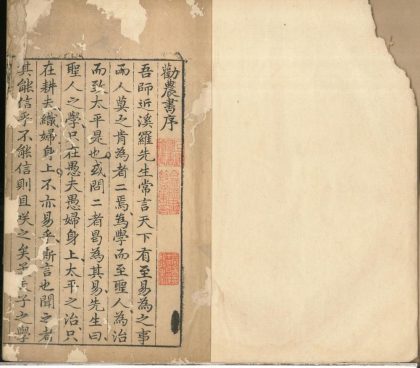 勸農書序
吾師近溪羅先生常言天下有至易為之事
而人莫之肯為者二焉為學而至聖人為治
而致太平是也或問二者曷為其易先生曰
聖人之學只在愚夫愚婦身上太平之治只
在耕夫織婦身上不亦易乎斯言也聞之者
其能信乎不能信則且疾之矣孟子之學